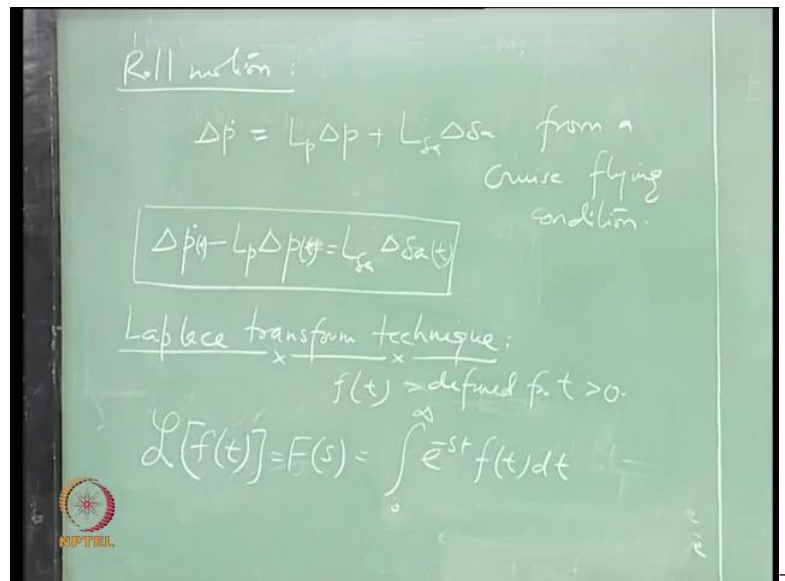 Roll motion :
Δṗ = L_p Δp + L_δa Δδa from a
cruise flying
condition.
Δṗ(t) - L_p Δp(t) = L_δa Δδa(t)
Laplace transform technique:
f(t) > defined for t > 0.
ℒ[f(t)] = F(s) = ∫₀^∞ e^-st f(t) dt
NPTEL